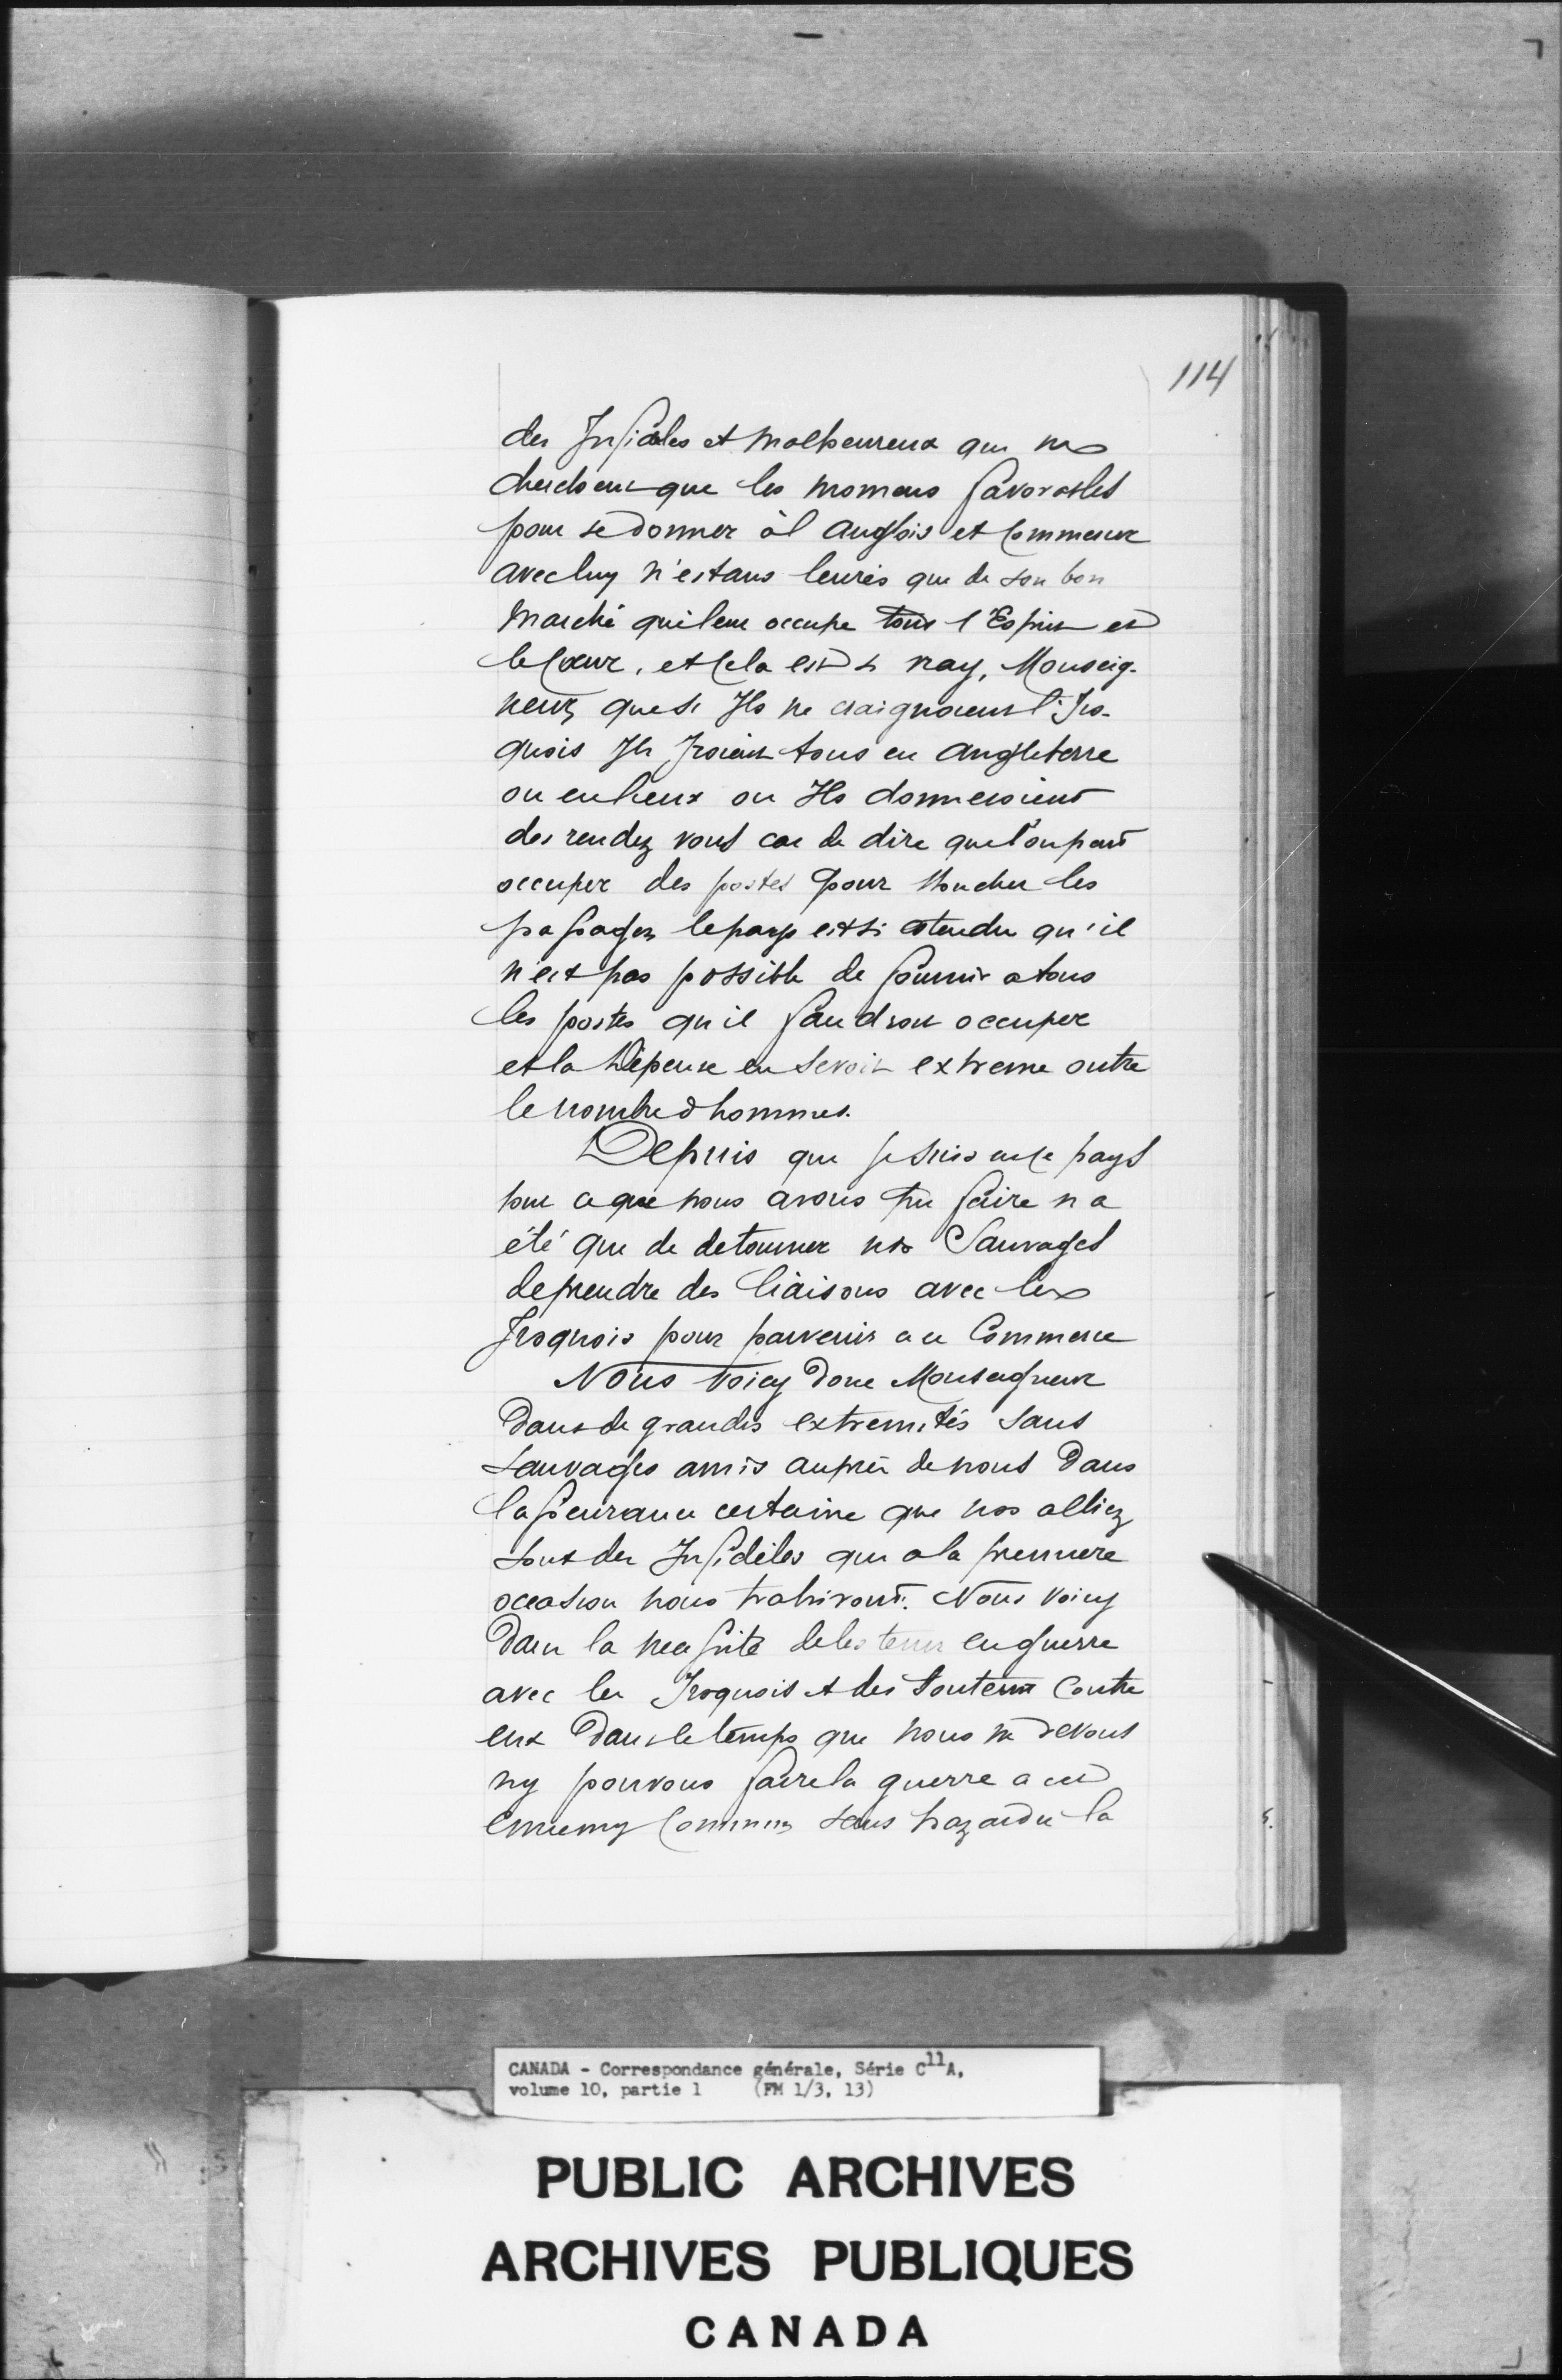 114
des Infideles et malheureux qui ne
cherchent que les momens favorables
pour se donner à l'anglois et Commercer
avec luy n'estans leurés que de son bon
marché qui leur occupe tout l'Esprit et
le Cœur, et Cela est si vray, Monseig-
neur, que si Ils ne craignoient l'Iro-
quois Ils Iroient tous en angleterre
ou en lieux ou Ils donneroient
des rendez vous car de dire que l'on peut
occuper des postes pour boucher les
passages le pays est si etendu qu'il
n'est pas possible de fournir a tous
les postes qu'il faudroit occuper
et la Dépense en seroit extreme outre
le nombre d'hommes.
Depuis que je suis en ce pays
tout ce que nous avons pu faire n a
été que de detourner nos Sauvages
de prendre des liaisons avec les
Iroquois pour parvenir a ce Commerce
Nous Voicy Donc Monseigneur
Dans de grandes extremités sans
Sauvages amis auprès de nous Dans
l'assurance certaine que nos alliez
sont des Infidèles qui a la premiere
occasion nous trahiront. Nous Voicy
Dans la necessité de les tenir en guerre
avec les Iroquois et des soutenir Contre
eux Dans le temps que nous ne devons
ny pouvons faire la guerre a cet
Ennemy Commun sans hazarder la
CANADA - Correspondance générale, Série C11A,
volume 10, partie 1 (FM 1/3, 13)
PUBLIC ARCHIVES
ARCHIVES PUBLIQUES
CANADA